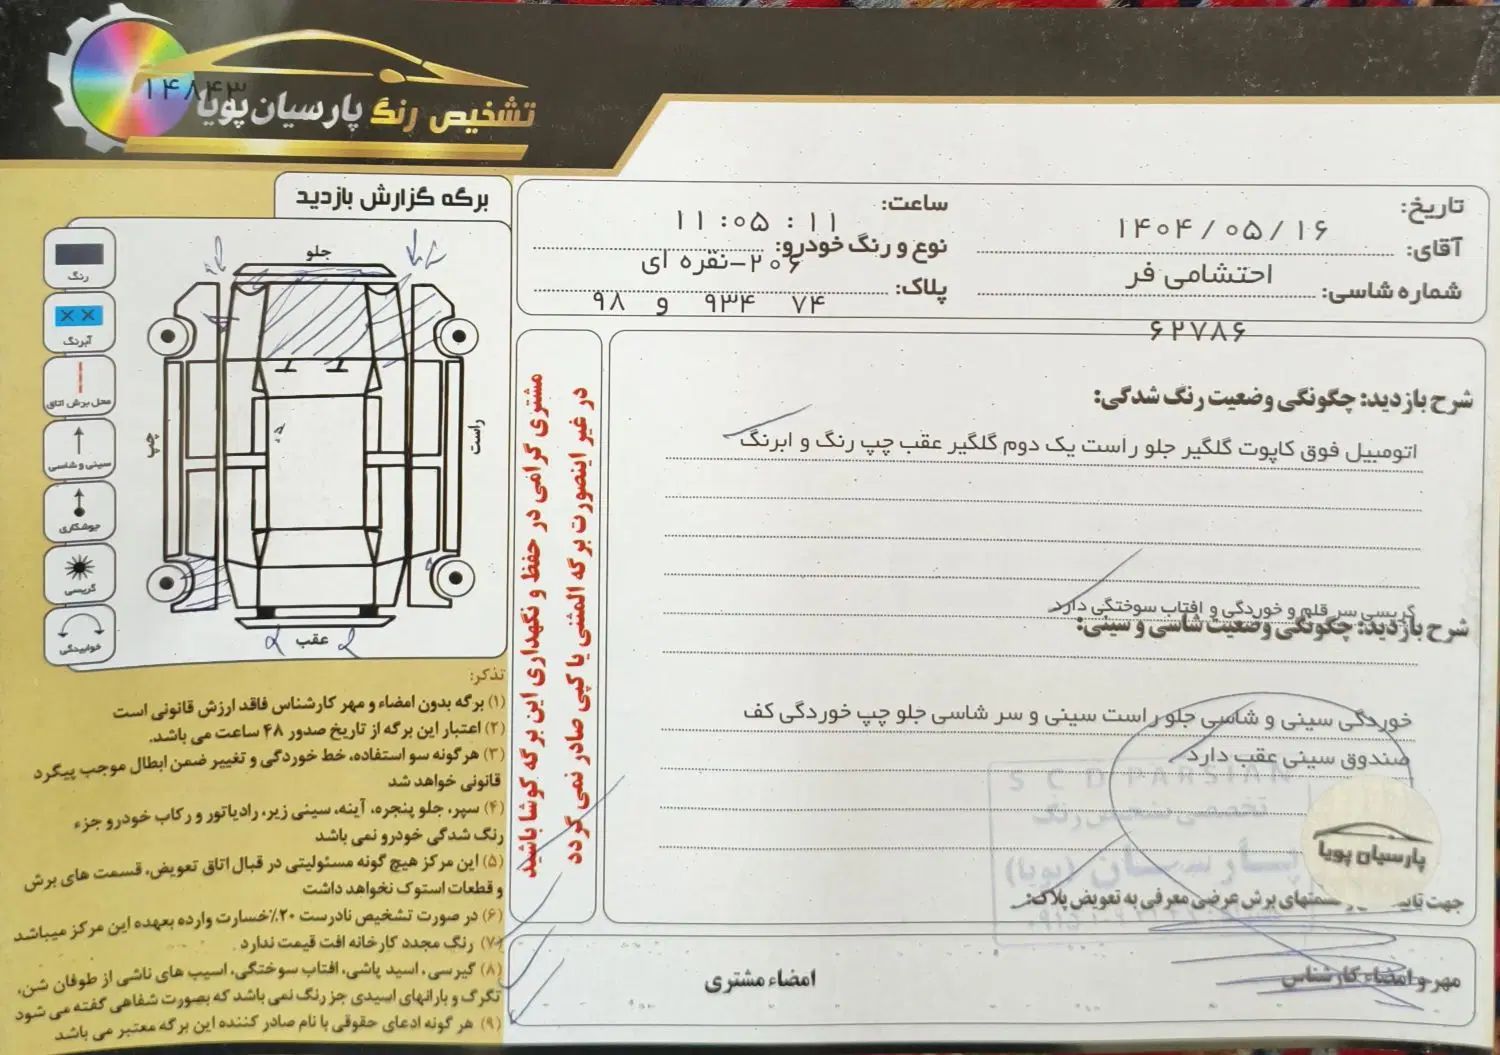 ۱۴۸۴۳
تشخیص رنگ پارسیان پویا
برگه گزارش بازدید
تاریخ: ۱۴۰۴/۰۵/۱۶
ساعت: ۱۱:۰۵:۱۱
آقای: احتشامی فر
نوع و رنگ خودرو: ۲۰۶-نقره ای
شماره شاسی: ۶۲۷۸۶
پلاک: ۹۸ و ۹۳۴ ۷۴
رنگ
آبرنگ
محل برش اتاق
سینی و شاسی
جوشکاری
گریسی
خوابیدگی
جلو
چپ
راست
عقب
مشتری گرامی در حفظ و نگهداری این برگه کوشا باشید
در غیر اینصورت برگه المثنی یا کپی صادر نمی گردد
شرح بازدید: چگونگی وضعیت رنگ شدگی:
اتومبیل فوق کاپوت گلگیر جلو راست یک دوم گلگیر عقب چپ رنگ و ابرنگ
گریسی سر قلم و خوردگی و افتاب سوختگی دارد
شرح بازدید: چگونگی وضعیت شاسی و سینی:
خوردگی سینی و شاسی جلو راست سینی و سر شاسی جلو چپ خوردگی کف
صندوق سینی عقب دارد
S C D PARSIAN
تخصصی تشخیص رنگ
پارسیان (پویا)
پارسیان پویا
جهت تایید قسمتهای برش عرضی معرفی به تعویض پلاک:
مهر و امضاء کارشناس
امضاء مشتری
تذکر:
(۱) برگه بدون امضاء و مهر کارشناس فاقد ارزش قانونی است
(۲) اعتبار این برگه از تاریخ صدور ۴۸ ساعت می باشد.
(۳) هرگونه سو استفاده، خط خوردگی و تغییر ضمن ابطال موجب پیگرد
قانونی خواهد شد
(۴) سپر، جلو پنجره، آینه، سینی زیر، رادیاتور و رکاب خودرو جزء
رنگ شدگی خودرو نمی باشد
(۵) این مرکز هیچ گونه مسئولیتی در قبال اتاق تعویض، قسمت های برش
و قطعات استوک نخواهد داشت
(۶) در صورت تشخیص نادرست ۲۰٪ خسارت وارده بعهده این مرکز میباشد
(۷) رنگ مجدد کارخانه افت قیمت ندارد
(۸) گیرسی، اسید پاشی، افتاب سوختگی، اسیب های ناشی از طوفان شن،
تگرگ و بارانهای اسیدی جز رنگ نمی باشد که بصورت شفاهی گفته می شود
(۹) هر گونه ادعای حقوقی با نام صادر کننده این برگه معتبر می باشد